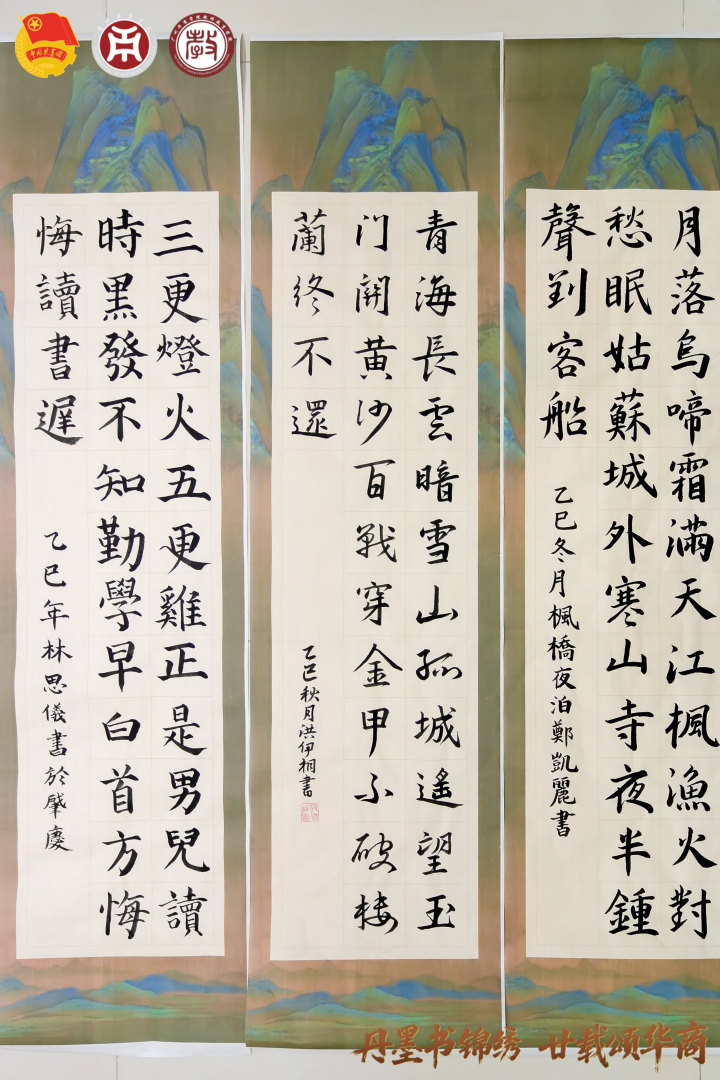 中国共青团
教
月落烏啼霜滿天江楓漁火對
愁眠姑蘇城外寒山寺夜半鍾
聲到客船
乙巳冬月楓橋夜泊鄭凱麗書
青海長雲暗雪山孤城遙望玉
门関黃沙百戰穿金甲不破楼
蘭終不還
乙巳秋月洪伊桐書
三更燈火五更雞正是男兒讀
時黑發不知勤學早白首方悔
悔讀書遲
乙巳年林思儀書於肇慶
丹墨书锦绣 廿载颂华商